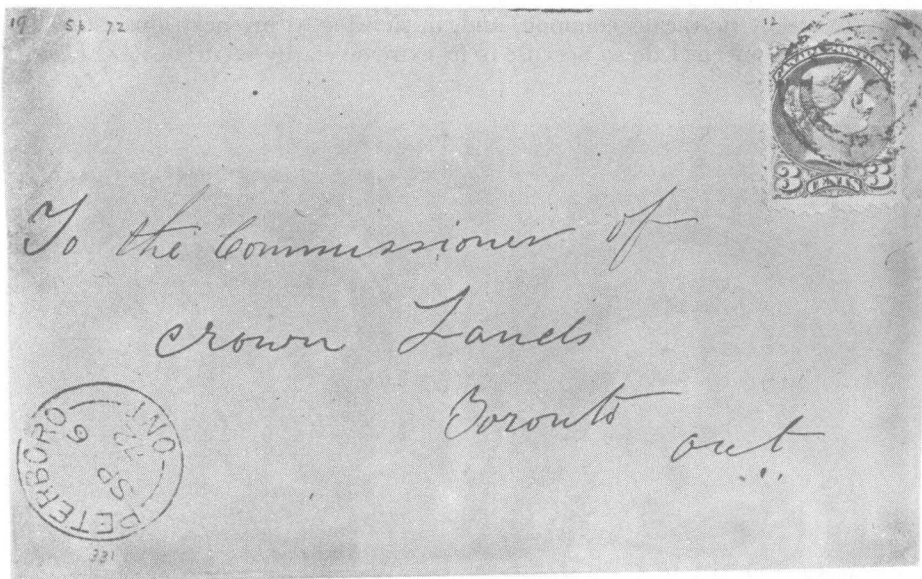 Sp 72
12
CANADA POSTAGE
3 CENTS 3
To the Commissioner of
Crown Lands
Toronto
Ont
PETERBORO - ONT
SP
6
72
331